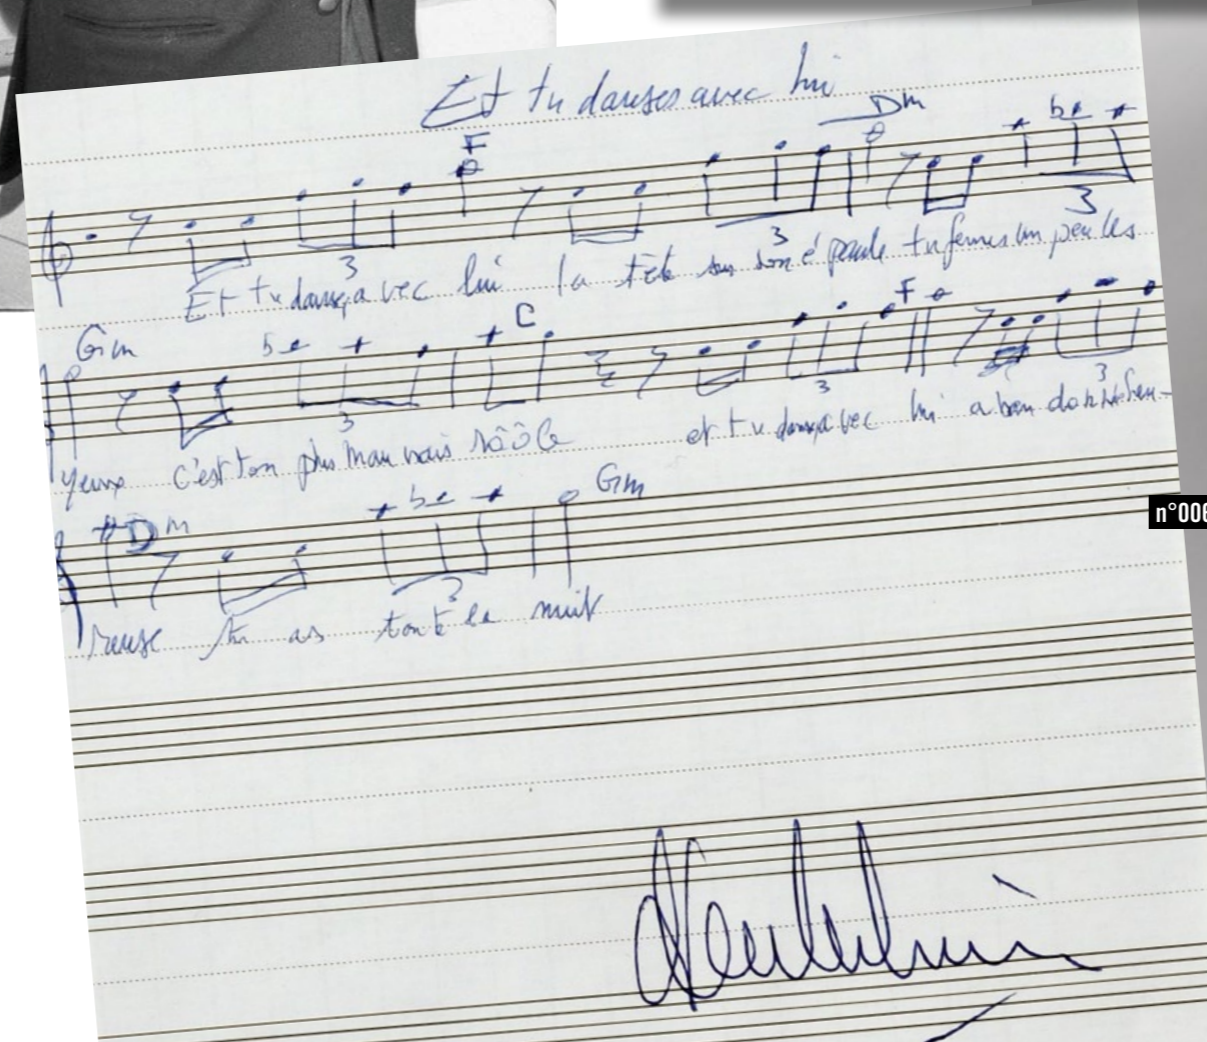 Et tu danses avec lui
F Dm
3 3 3
Et tu danses avec lui la tête sur son épaule tu fermes un peu les
Gm C F
3 3 3
yeux c'est ton plus mauvais rôôle et tu danses avec lui abandonnée heu-
n°006
Dm Gm
3
reuse tu as toute la nuit